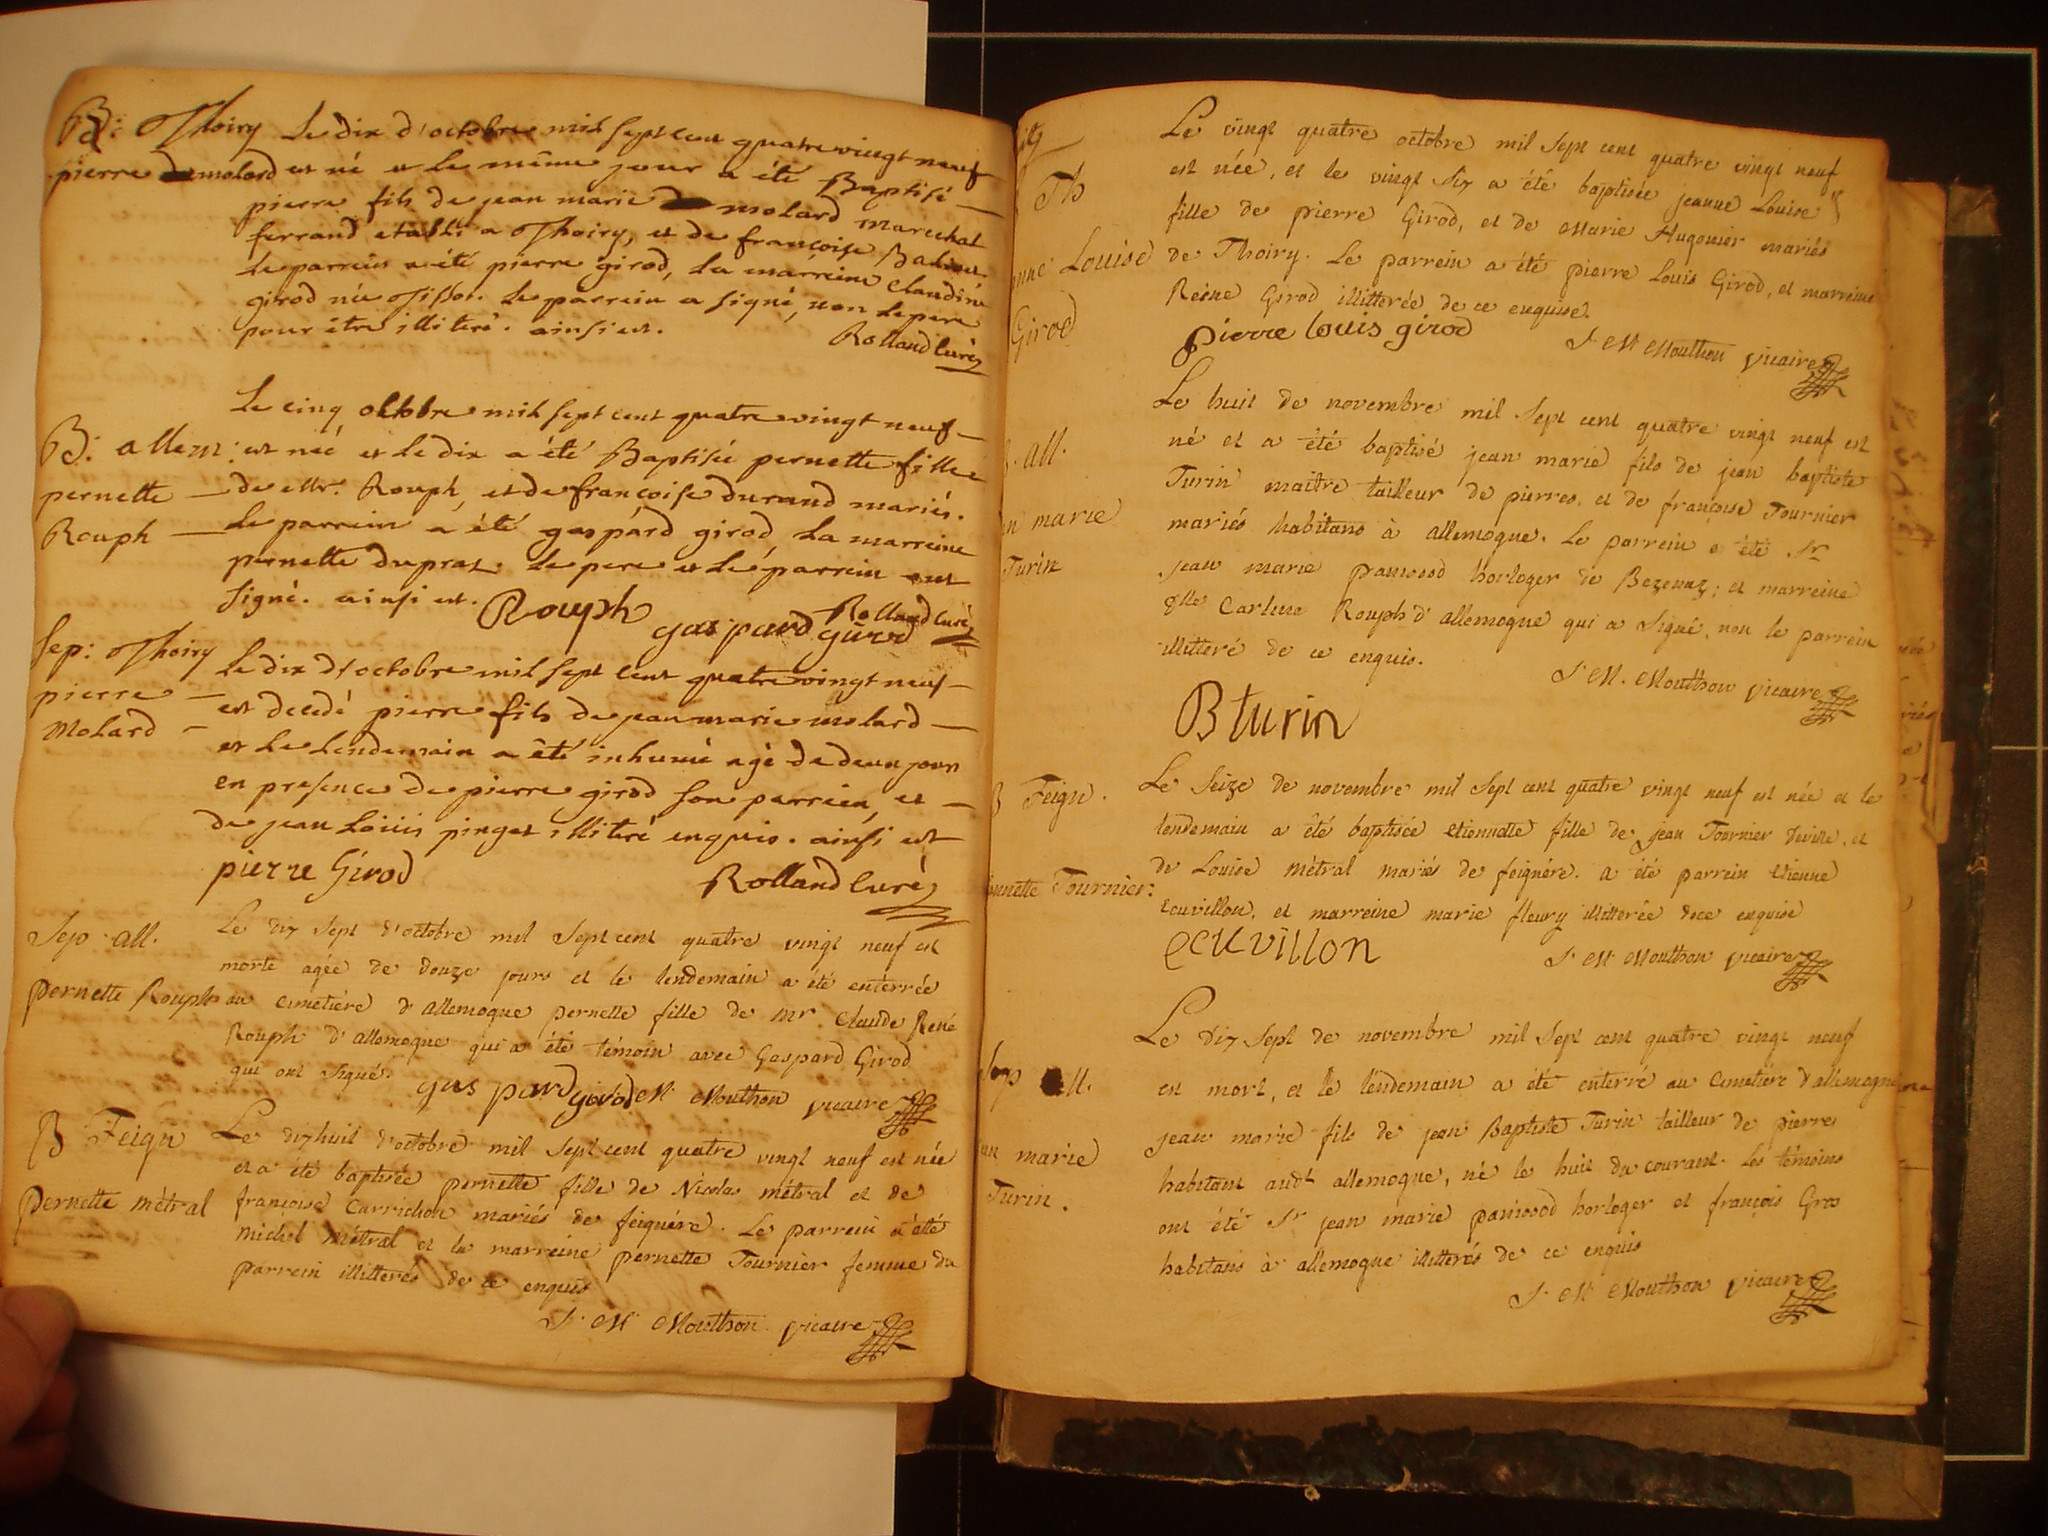 B: Thoiry Le dix d'octobre mil sept cent quatre vingt neuf
pierre molard est né et le même jour a été Baptisé
pierre fils de jean marie molard marechal
ferrand etabli a Thoiry, et de françoise
Le parrein a été pierre girod, La marreine claudine
girod née Tissot. Le parrein a signé, non le pere
pour être illiteré. ainsi est.
Rolland curé
Le cinq octobre mil sept cent quatre vingt neuf
B: allem: est née et le dix a été Baptisée pernette fille
pernette de Mr. Rouph, et de françoise durand mariés.
Rouph Le parrein a été gaspard girod, La marreine
pernette duprat. Le pere et le parrein ont
signé. ainsi est. Rouph Rolland curé
gaspard girod
Sep: Thoiry Le dix d'octobre mil sept cent quatre vingt neuf
pierre est decedé pierre fils de jean marie molard
Molard et Le Lendemain a été inhumé agé de deux jours
en presence de pierre girod son parrein, et
de jean Loüis pinget illiteré enquis. ainsi est
pierre Girod Rolland curé
Sep. all. Le dix sept d'octobre mil sept cent quatre vingt neuf est
morte agée de douze jours et le lendemain a été enterrée
pernette Rouph au cimetière d'allemogne pernette fille de Mr. Claude René
Rouph d'allemogne qui a été témoin avec Gaspard Girod
qui ont signés. gaspard girod M Mouthon vicaire
B Feign Le dix huit d'octobre mil sept cent quatre vingt neuf est née
et a été baptisée pernette fille de Nicolas métral et de
Pernette métral françoise Carrichon mariés de feignére. Le parrein a été
michel métral et la marreine pernette Tournier femme du
parrein illitterés de ce enquis
J. M Mouthon vicaire
Le vingt quatre octobre mil sept cent quatre vingt neuf
Th est née, et le vingt six a été baptisée jeanne Louise
fille de pierre Girod, et de Marie Hugonier mariés
nne Louise de Thoiry. Le parrein a été pierre Louis Girod, et marreine
Girod Reine Girod illitterée de ce enquise.
pierre louis girod J M Mouthon vicaire
Le huit de novembre mil sept cent quatre vingt neuf est
all. né et a été baptisé jean marie fils de jean baptiste
Turin maitre tailleur de pierres, et de françoise Tournier
n marie mariés habitans à allemogne. Le parrein a été Sr
Turin jean marie panissod horloger de Bezenaz; et marreine
dlle Rouph d'allemogne qui a signé, non le parrein
illitteré de ce enquis.
J M. Mouthon vicaire
B turin
B Feign. Le Seize de novembre mil sept cent quatre vingt neuf est née et le
lendemain a été baptisée etiennette fille de jean Tournier , et
de Louise métral mariés de feignére. a été parrein etienne
nnette Tournier: Ecuvillon, et marreine marie fleury illitterée de ce enquise
ecuvillon J. M Mouthon vicaire
Le dix sept de novembre mil sept cent quatre vingt neuf
all. est mort, et le lendemain a été enterré au cimetière d'allemogne
jean marie fils de jean Baptiste Turin tailleur de pierre
n marie habitant audt allemogne, né le huit du courant. Les témoins
Turin. ont été Sr jean marie panissod horloger et françois Gros
habitans à allemogne illitterés de ce enquis
J. M Mouthon vicaire